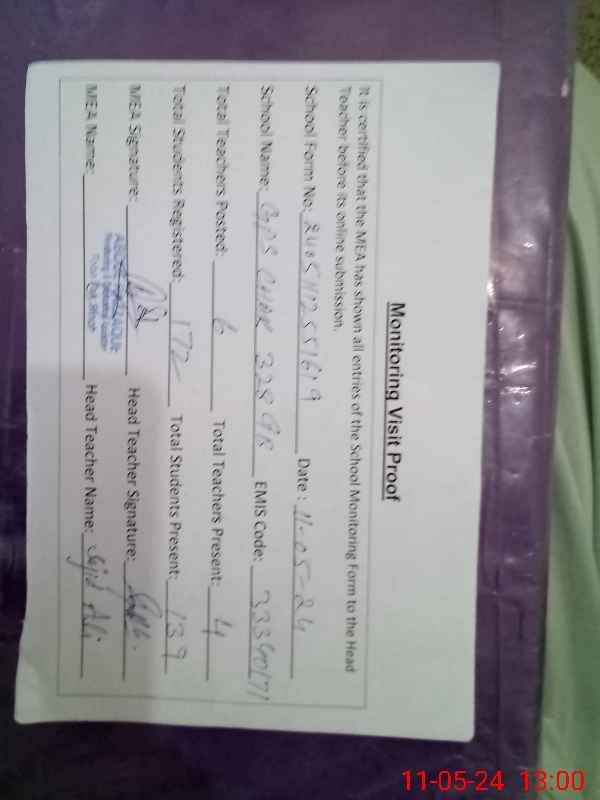 Monitoring Visit Proof
It is certified that the MEA has shown all entries of the School Monitoring Form to the Head
Teacher before its online submission.
School Form No: Date: 11-05-24
School Name: GPS CHAK 328 GB EMIS Code: 33340171
Total Teachers Posted: 6 Total Teachers Present: 4
Total Students Registered: 172 Total Students Present: 139
MEA Signature: Head Teacher Signature:
MEA Name: Head Teacher Name: Sajid Ali
11-05-24 13:00